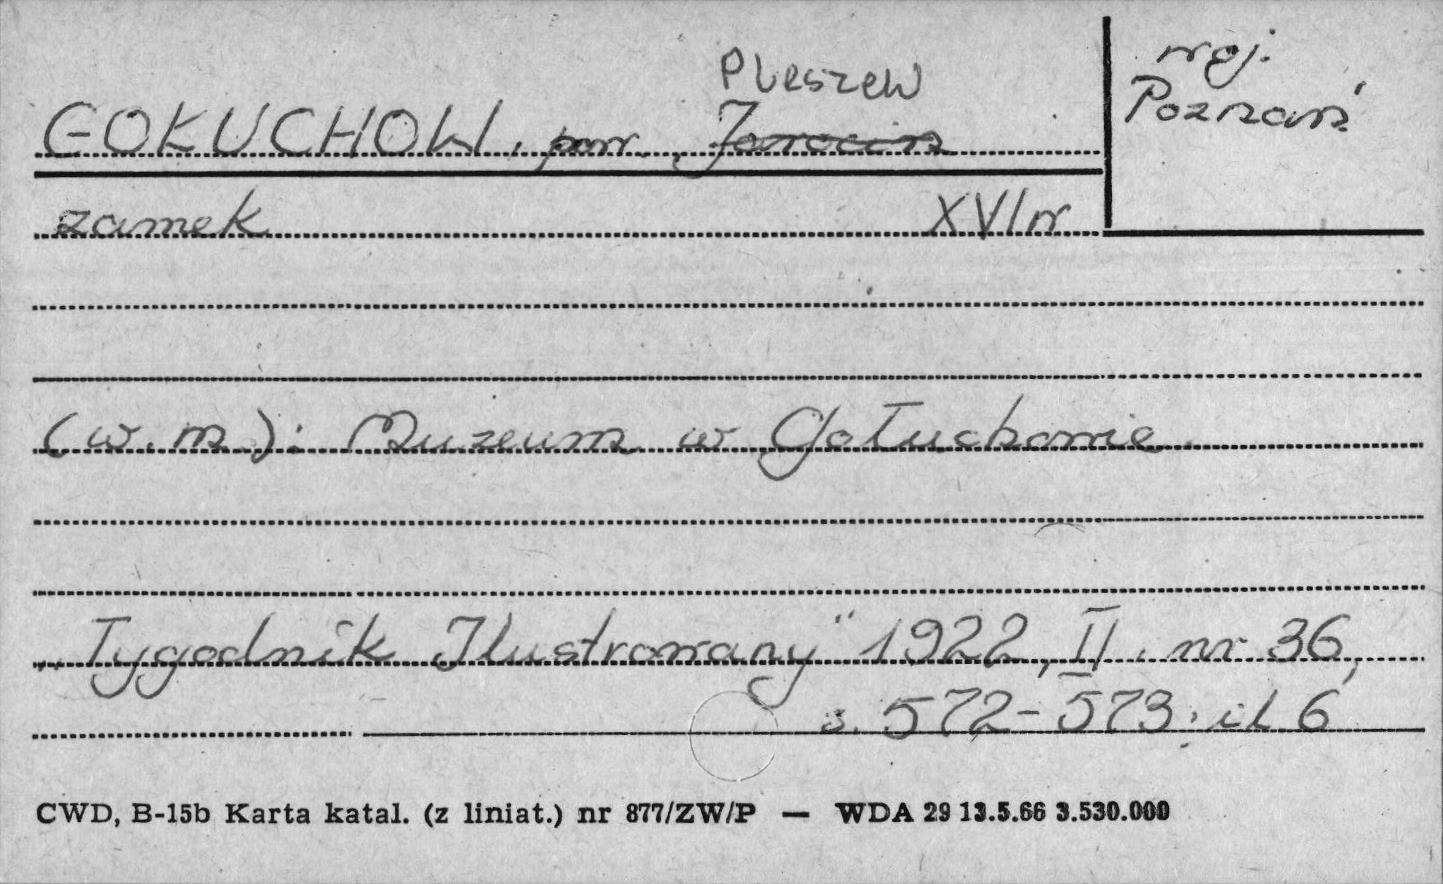 Pleszew
GOŁUCHOW, pow. Jarocin
woj.
Poznań
zamek XVI w
(w. m.): Muzeum w Gołuchowie.
„Tygodnik Ilustrowany" 1922, II. nr 36,
s. 572-573. il 6
CWD, B-15b Karta katal. (z liniat.) nr 877/ZW/P — WDA 29 13.5.66 3.530.000